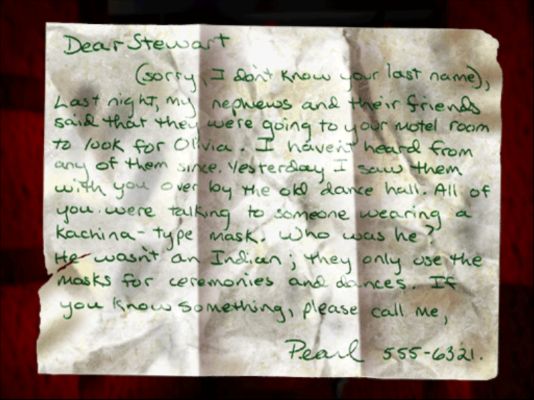 Dear Stewart
(sorry, I don't know your last name),
Last night, my nephews and their friends
said that they were going to your motel room
to look for Olivia. I haven't heard from
any of them since. Yesterday I saw them
with you over by the old dance hall. All of
you were talking to someone wearing a
kachina-type mask. Who was he?
He wasn't an Indian; they only use the
masks for ceremonies and dances. If
you know something, please call me,
Pearl 555-6321.